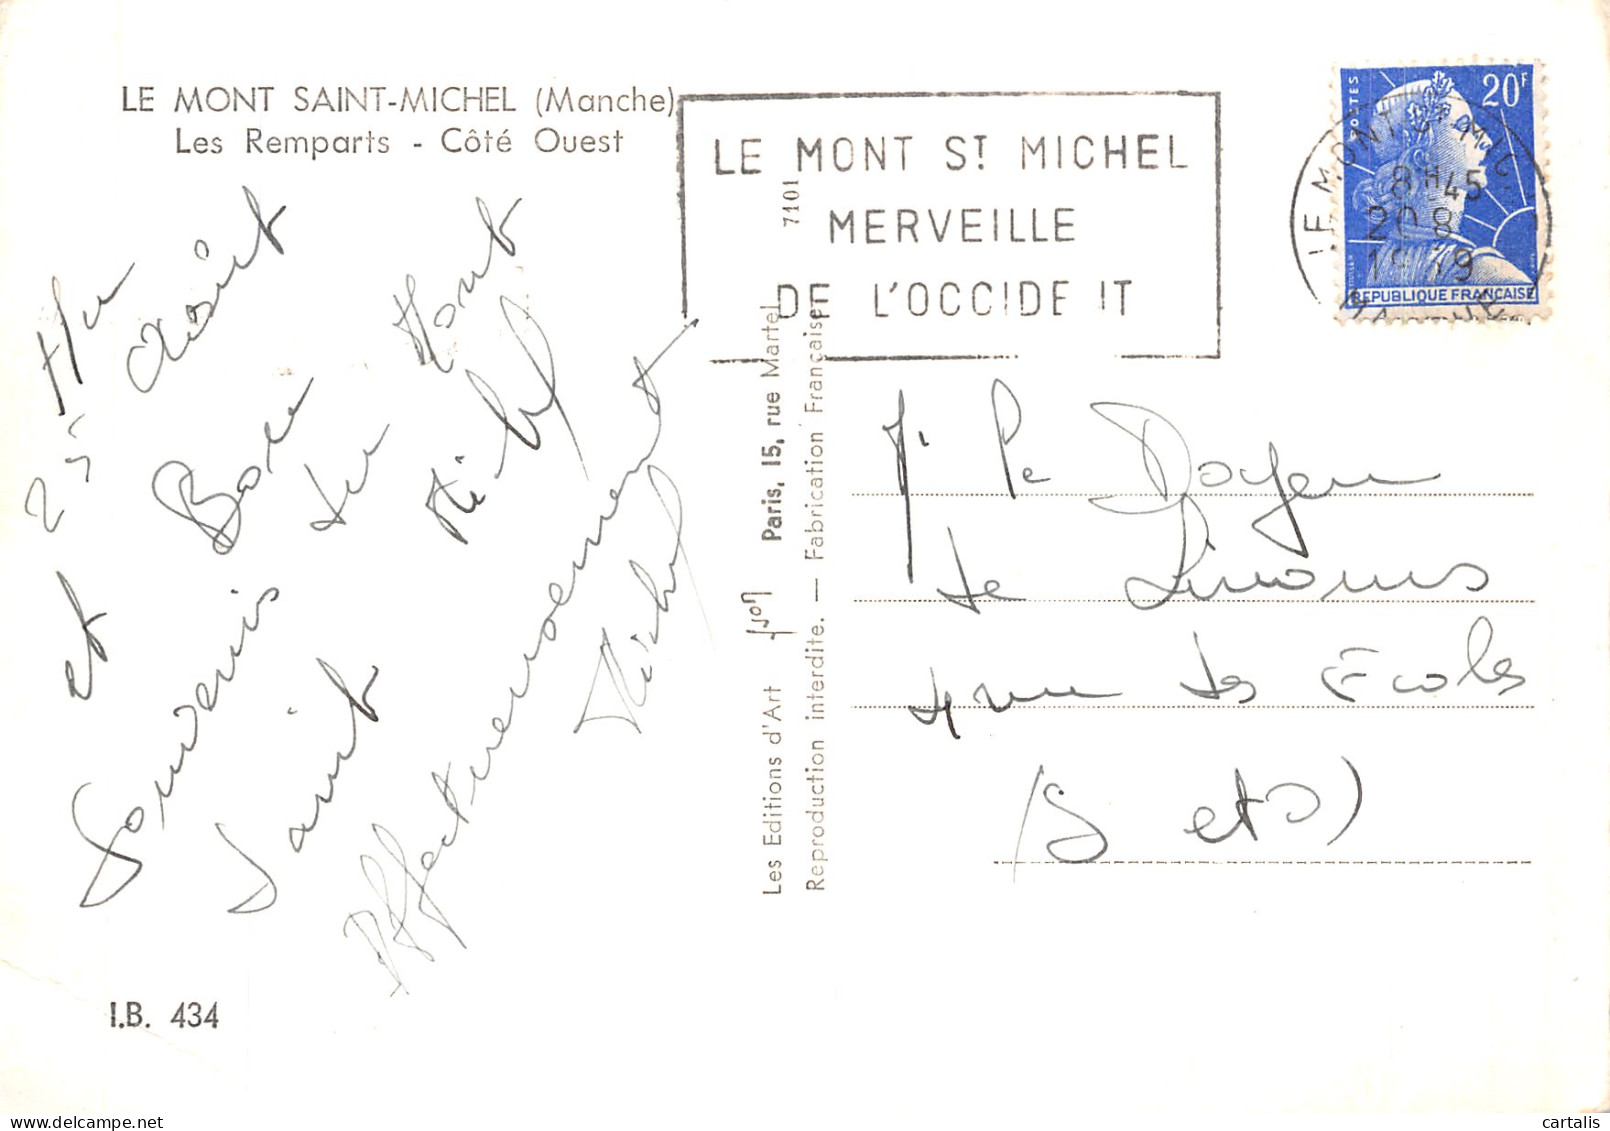 LE MONT SAINT-MICHEL (Manche)
Les Remparts - Côté Ouest
LE MONT ST MICHEL
MERVEILLE
DE L'OCCIDE IT
POSTES
20F
8H45
20 8
REPUBLIQUE FRANÇAISE
Au
25 Août
et Bons
Souvenirs du Mont
Saint Michel
Affectueusement
Michel
7101
Les Editions d'Art YVON Paris, 15, rue Martel
Reproduction interdite. — Fabrication Française
Le Doyen
de
rue des Écoles
(S et O)
I.B. 434
cartalis